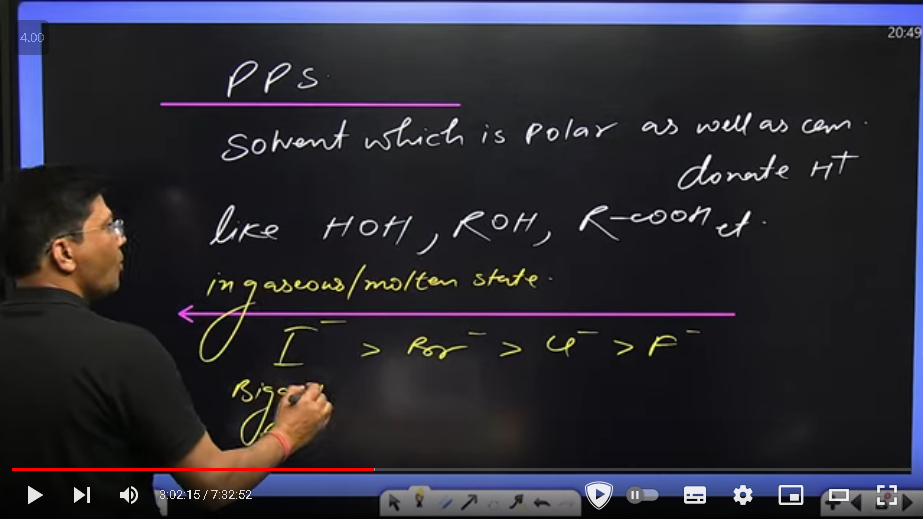 4.00
20:49
PPS.
Solvent which is polar as well as can.
donate H+
like HOH, ROH, R-COOH et.
in gaseous/molten state.
I⁻ > Br⁻ > Cl⁻ > F⁻
3:02:15 / 7:32:52